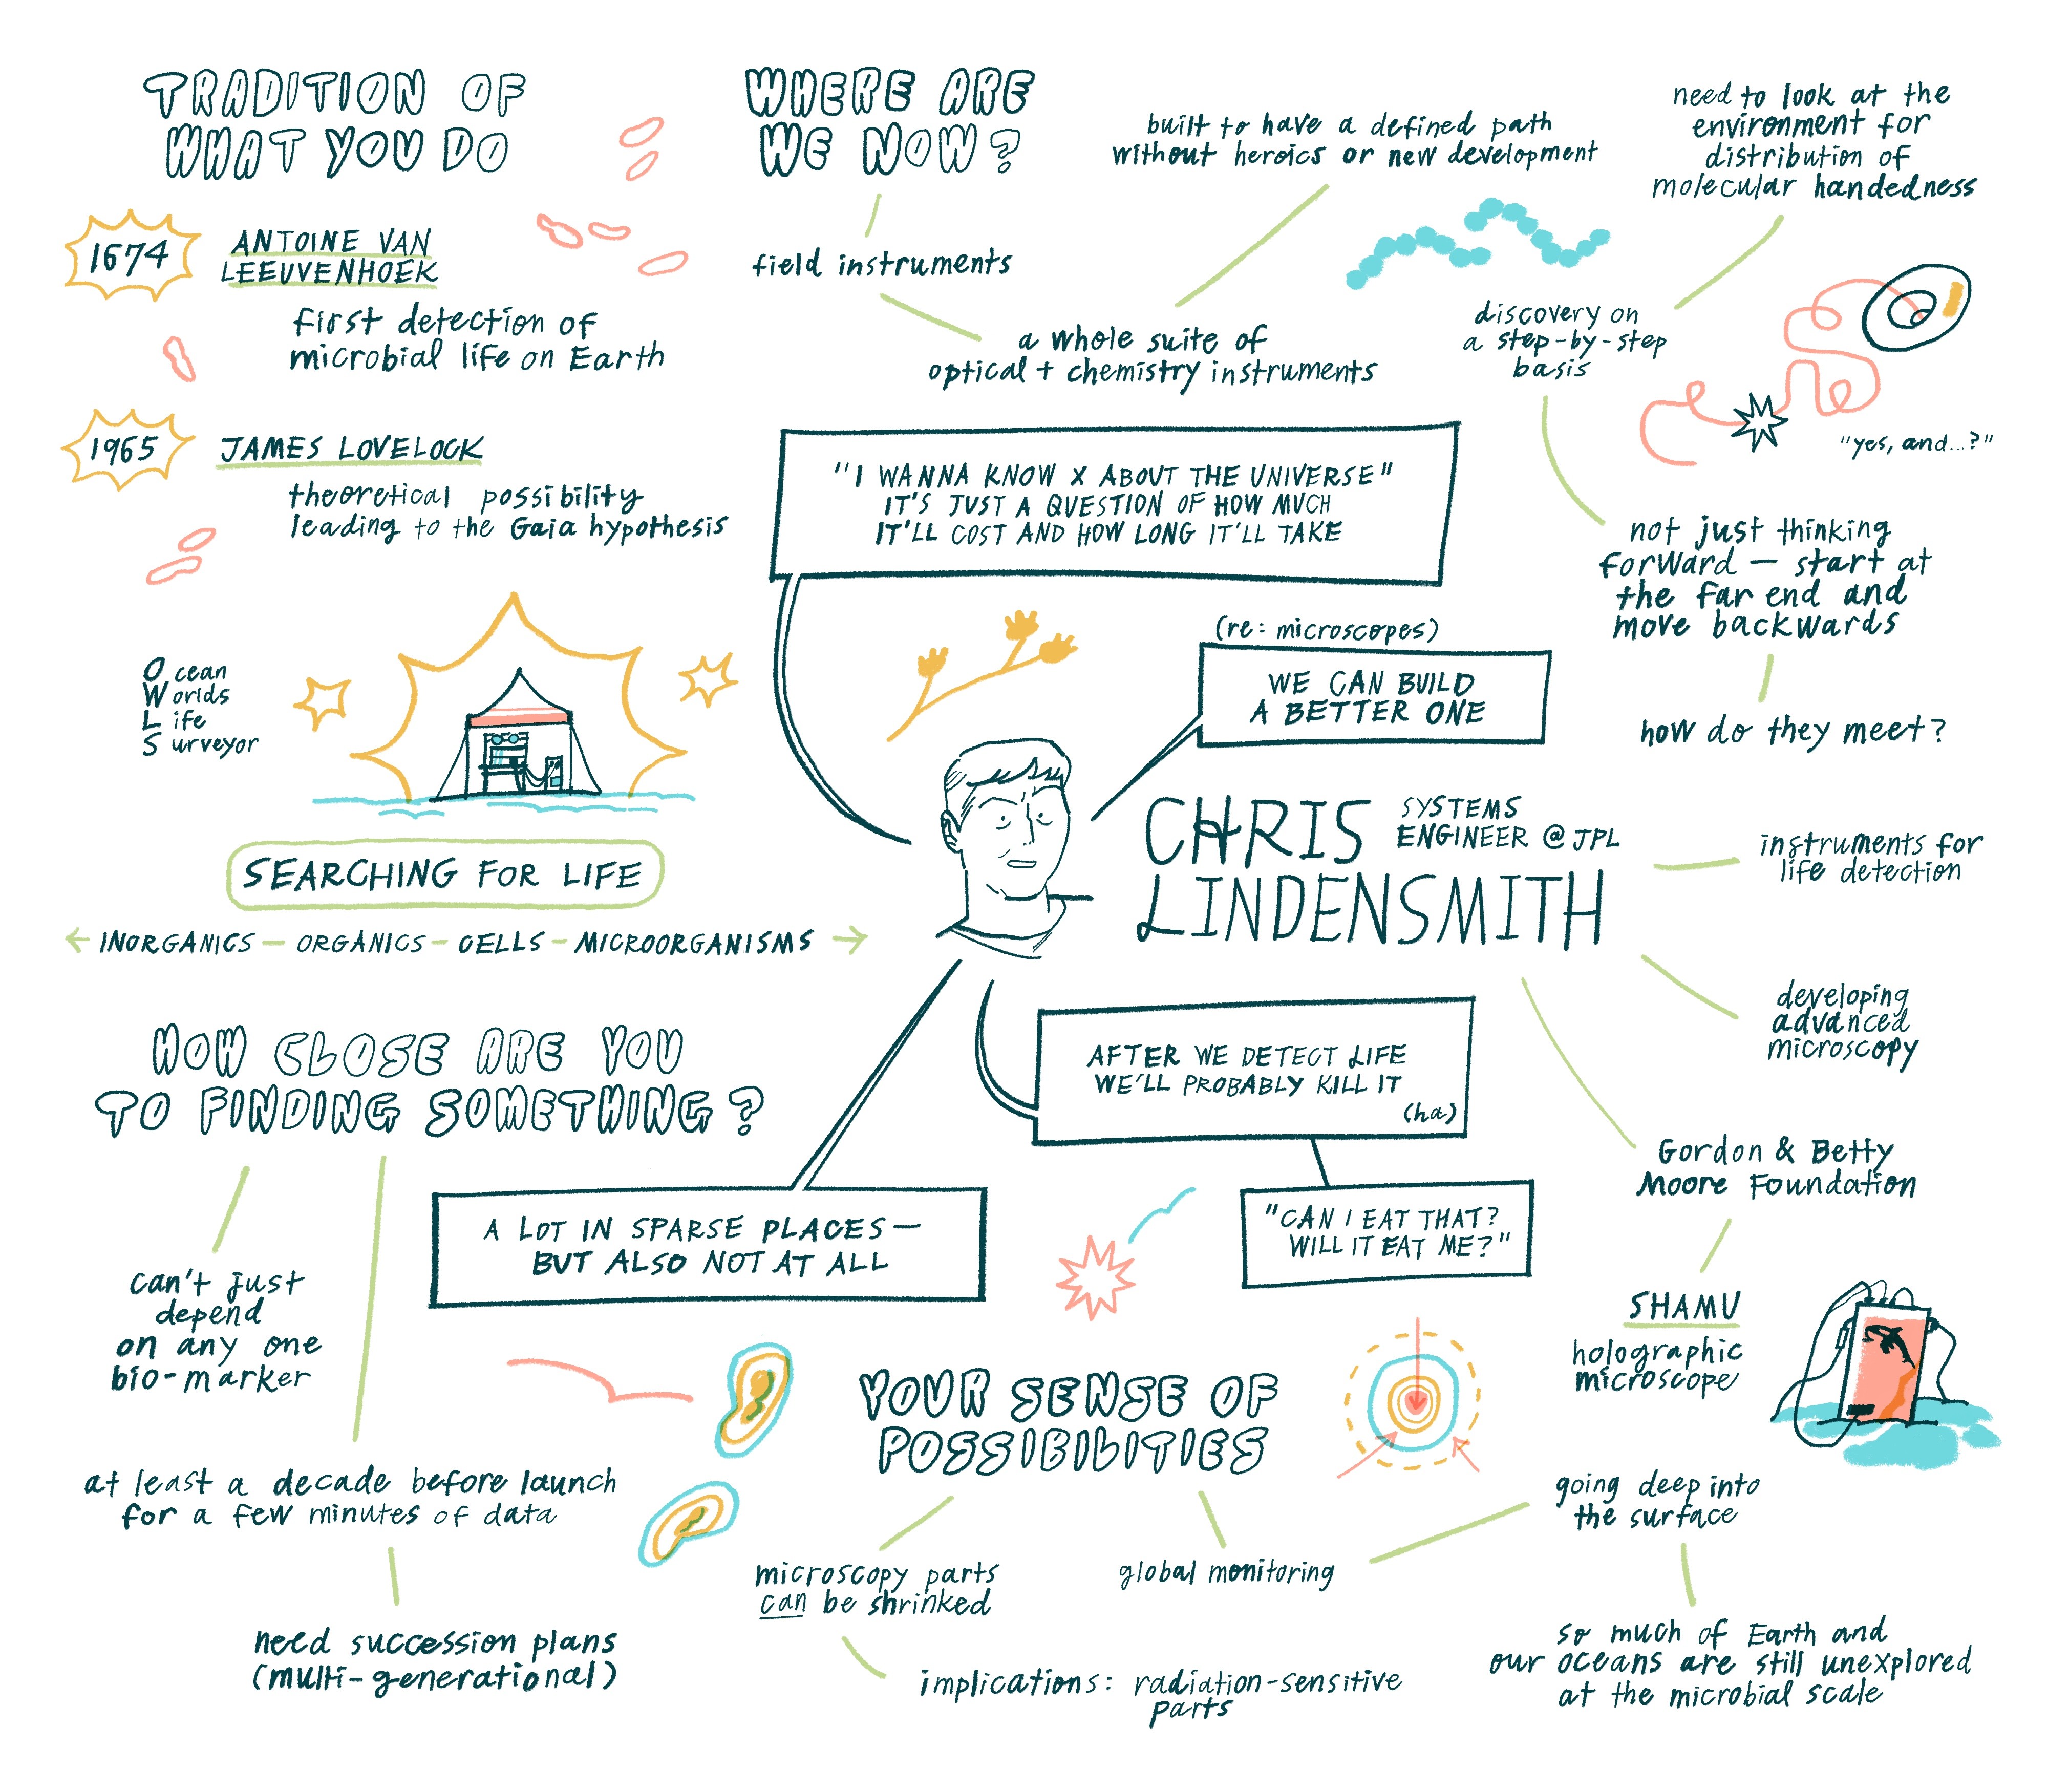 TRADITION OF
WHAT YOU DO
1674
ANTOINE VAN
LEEUVENHOEK
first detection of
microbial life on Earth
1965
JAMES LOVELOCK
theoretical possibility
leading to the Gaia hypothesis
Ocean
Worlds
Life
Surveyor
SEARCHING FOR LIFE
← INORGANICS — ORGANICS — CELLS — MICROORGANISMS →
HOW CLOSE ARE YOU
TO FINDING SOMETHING?
can't just
depend
on any one
bio-marker
at least a decade before launch
for a few minutes of data
need succession plans
(multi-generational)
WHERE ARE
WE NOW?
field instruments
built to have a defined path
without heroics or new development
a whole suite of
optical + chemistry instruments
need to look at the
environment for
distribution of
molecular handedness
discovery on
a step-by-step
basis
"yes, and...?"
not just thinking
forward — start at
the far end and
move backwards
how do they meet?
"I WANNA KNOW X ABOUT THE UNIVERSE"
IT'S JUST A QUESTION OF HOW MUCH
IT'LL COST AND HOW LONG IT'LL TAKE
(re: microscopes)
WE CAN BUILD
A BETTER ONE
CHRIS
LINDENSMITH
SYSTEMS
ENGINEER @ JPL
instruments for
life detection
developing
advanced
microscopy
Gordon & Betty
Moore Foundation
SHAMU
holographic
microscope
AFTER WE DETECT LIFE
WE'LL PROBABLY KILL IT
(ha)
"CAN I EAT THAT?
WILL IT EAT ME?"
A LOT IN SPARSE PLACES —
BUT ALSO NOT AT ALL
YOUR SENSE OF
POSSIBILITIES
microscopy parts
can be shrinked
implications: radiation-sensitive
parts
global monitoring
going deep into
the surface
so much of Earth and
our oceans are still unexplored
at the microbial scale